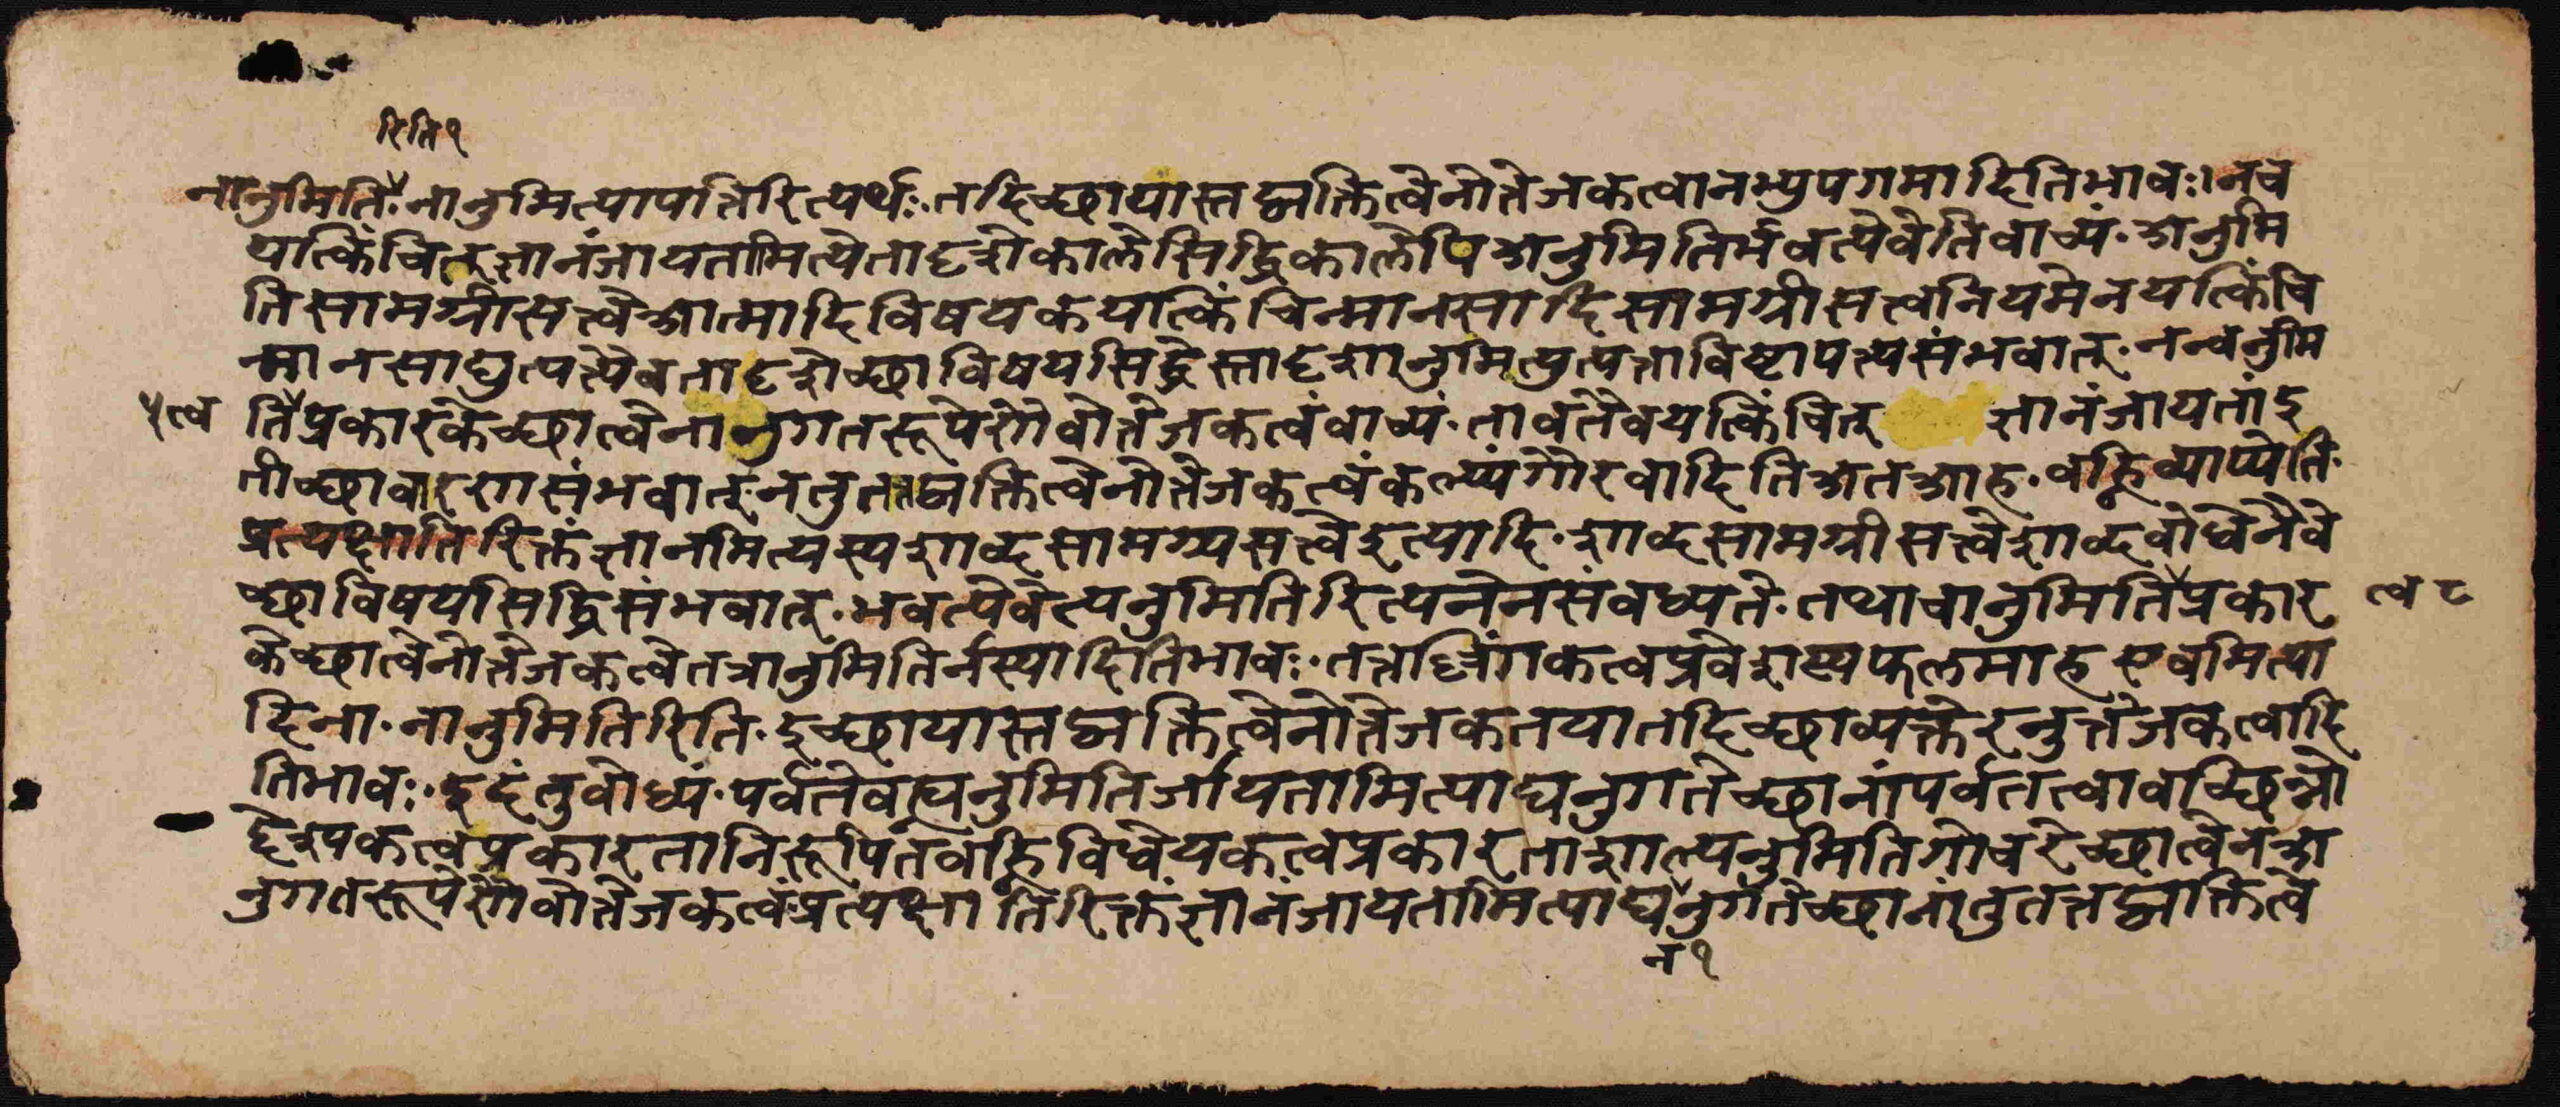 रिति१
नानुमितिः नानुमित्यापत्तिरित्यर्थः॰तदिच्छायास्तद्व्यक्तित्वेनोत्तेजकत्वानभ्युपगमादितिभावः।नच
यत्किंचित्ज्ञानंजायतामित्येतादृशेकालेसिद्धिकालेपिअनुमितिर्भवत्येवेतिवाच्यं॰अनुमि
तिसामग्रीसत्त्वेआत्मादिविषयकयत्किंचिन्मानसादिसामग्रीसत्त्वनियमेनयत्किंचि
न्मानसाद्युत्पत्त्यैवतादृशेच्छाविषयसिद्धेस्तादृशानुमित्युत्पत्ताविष्टापत्त्यसंभवात्॰नन्वनुमि
५त्व तिप्रकारकेच्छात्वेनानुगतरूपेणैवोत्तेजकत्वंवाच्यं॰तावतैवयत्किंचित् ज्ञानंजायतांइ
तीच्छावारणसंभवात्॰नतुतत्तद्व्यक्तित्वेनोत्तेजकत्वंकल्प्यंगौरवादितिअतआह॰वह्निव्याप्येति॰
प्रत्यक्षातिरिक्तंज्ञानमित्यस्यशाब्दसामग्र्यसत्त्वेइत्यादि॰शाब्दसामग्रीसत्त्वेशाब्दबोधेनैवे
च्छाविषयसिद्धिसंभवात्॰भवत्येवेत्यनुमितिरित्यनेनसंबध्यते॰तथाचानुमितिप्रकार त्व ८
केच्छात्वेनोत्तेजकत्वेतत्रानुमितिर्नस्यादितिभावः॰तत्तल्लिंगकत्वप्रवेशस्यफलमाहएवमित्या
दिना॰नानुमितिरिति॰इच्छायास्तद्व्यक्तित्वेनोत्तेजकतयातदिच्छाव्यक्तेरनुत्तेजकत्वादि
तिभावः॰इदंतुबोध्यं॰पर्वतेवह्न्यनुमितिर्जायतामित्याद्यनुगतेच्छानांपर्वतत्वावच्छिन्नो
द्देश्यकत्वप्रकारतानिरूपितवह्निविधेयकत्वप्रकारताशाल्यनुमितिगोचरेच्छात्वेनअ
नुगतरूपेणैवोत्तेजकत्वंप्रत्यक्षातिरिक्तंज्ञानंजायतामित्याद्यनुगतेच्छानांतुतत्तद्व्यक्तित्वे
न१